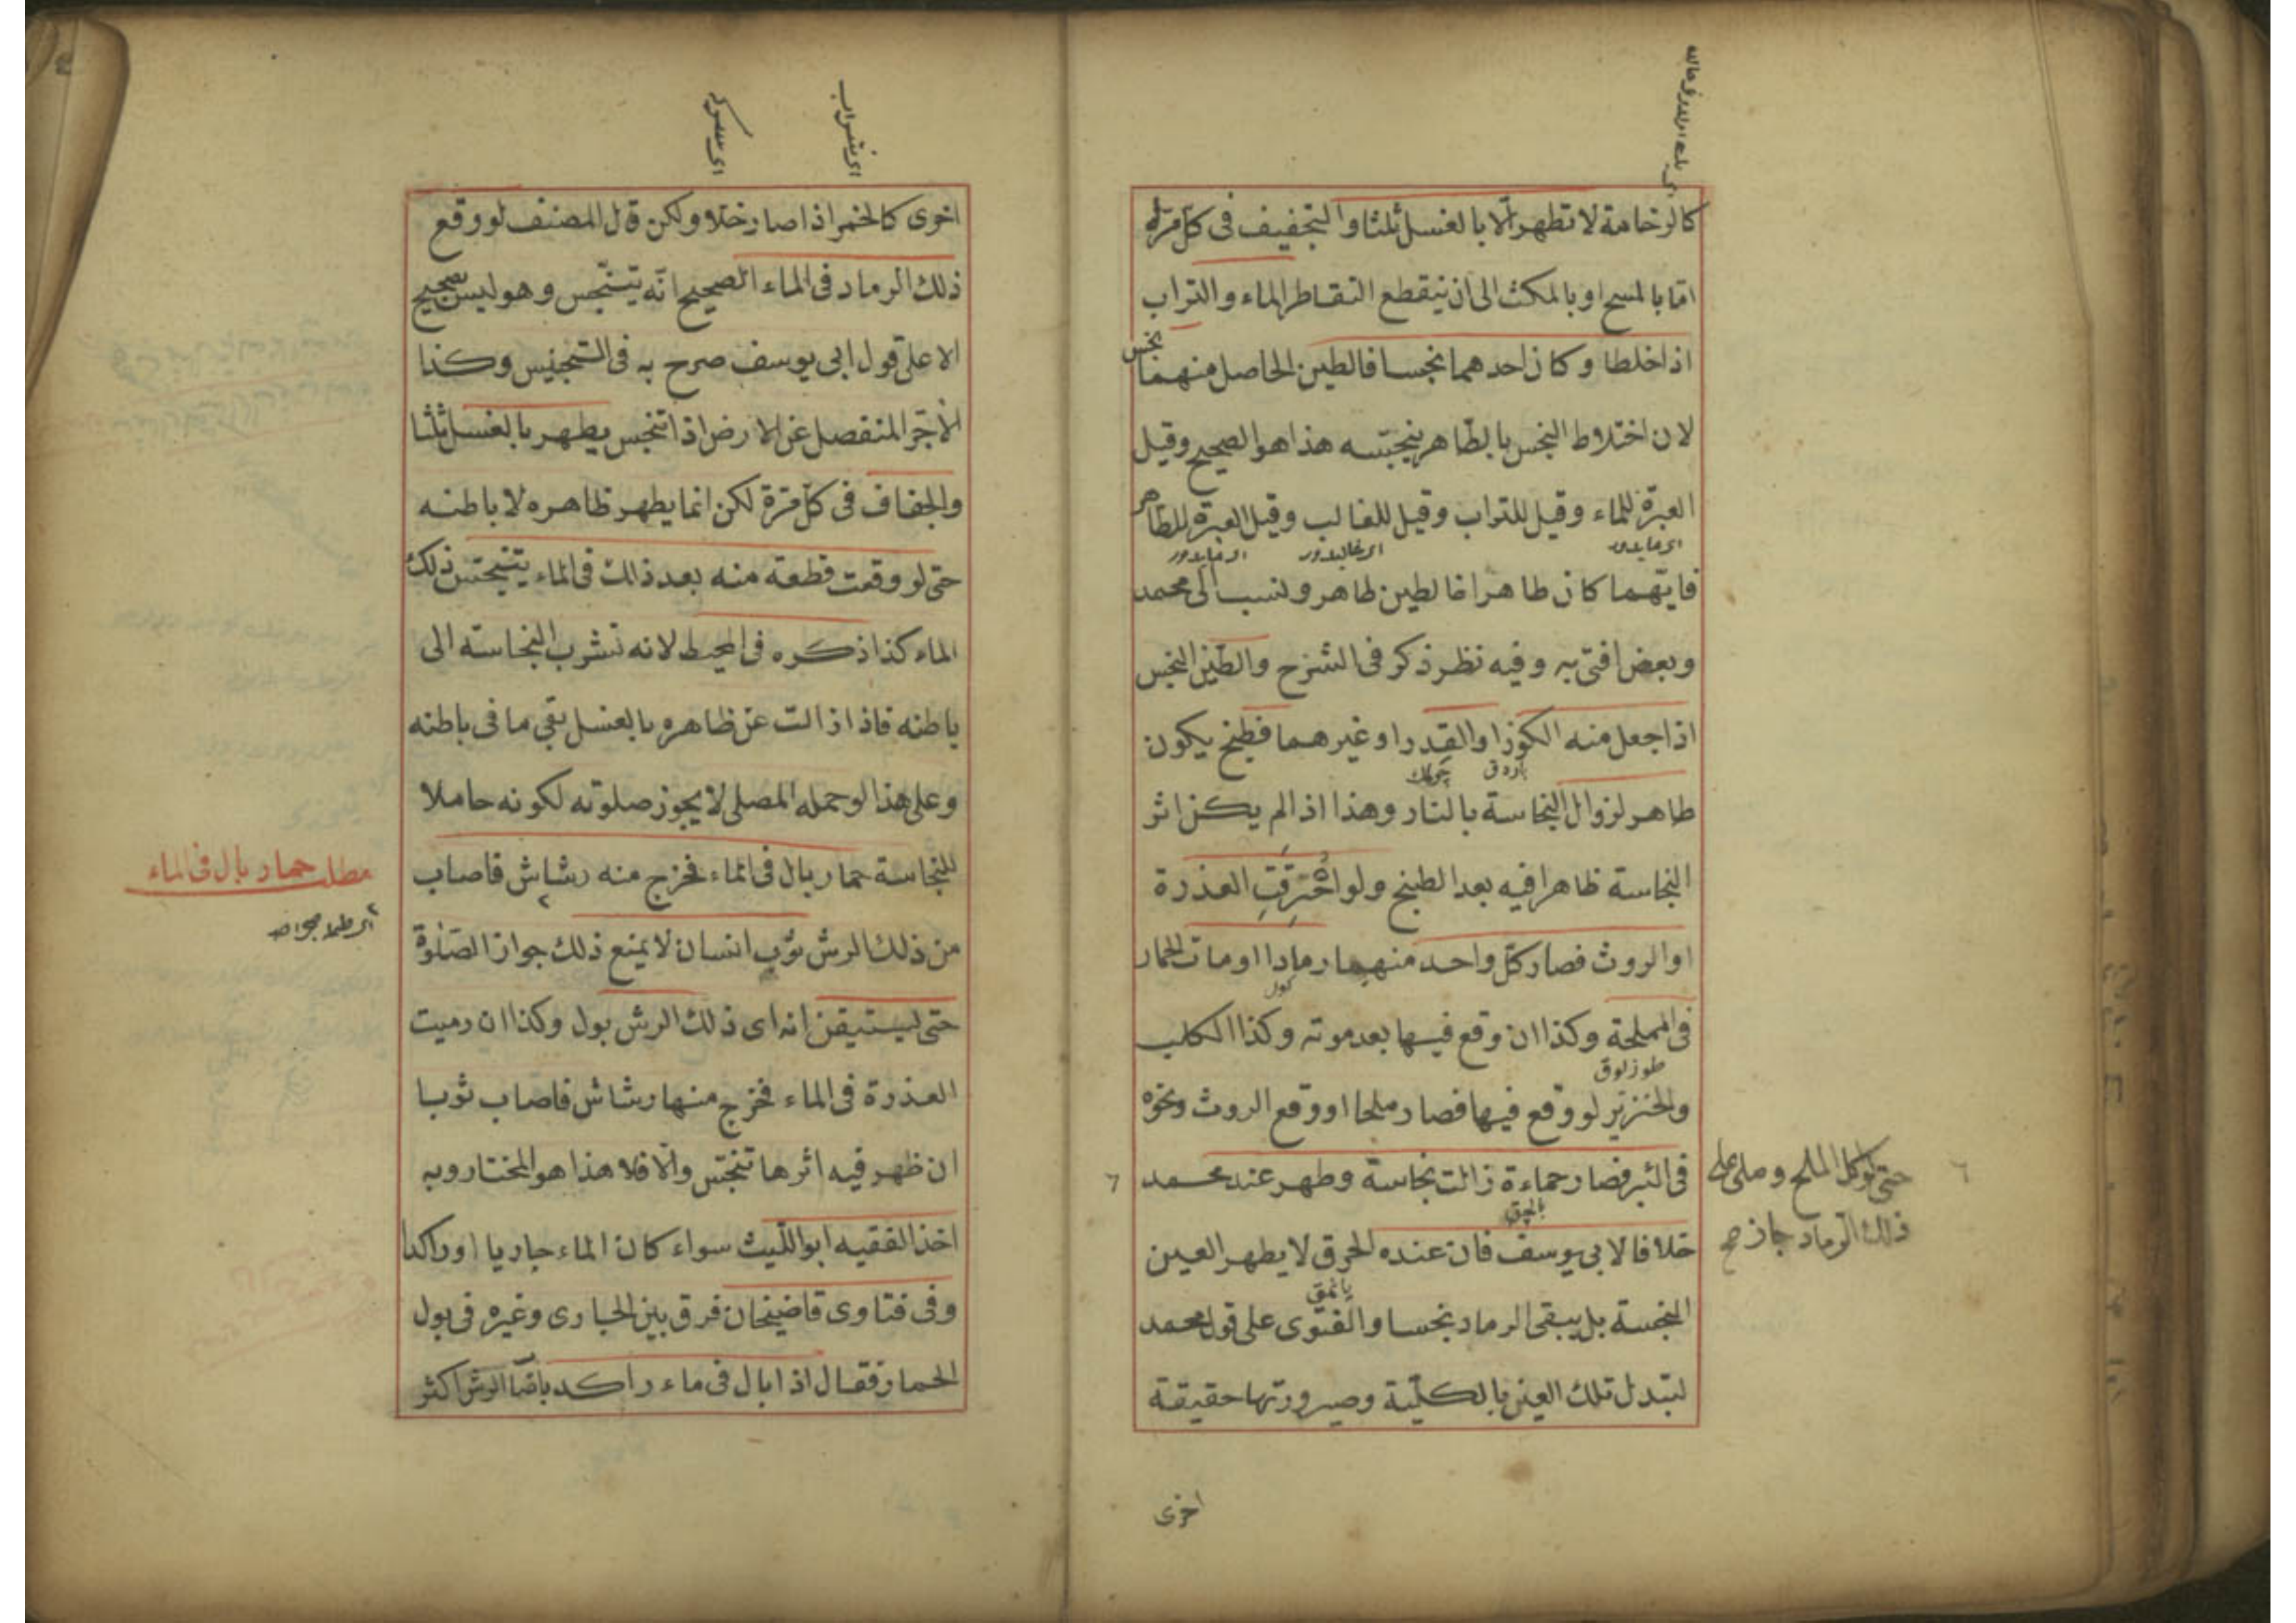 كالرخامة لا تطهر الا بالغسل ثلثا والتجفيف فى كل مرة
اما بالمسح او بالمكث الى ان ينقطع التقاطر الماء والتراب
اذا خلطا وكان احدهما نجسا فالطين الحاصل منهما نجس
لان اختلاط النجس بالطاهر ينجسه هذا هو الصحيح وقيل
العبرة للماء وقيل للتراب وقيل للغالب وقيل العبرة للطاهر
فايهما كان طاهرا فالطين طاهر ونسب الى محمد
وبعض افتى به وفيه نظر ذكر فى الشرح والطين النجس
اذا جعل منه الكوز او القدر او غيرهما فطبخ يكون
بارداق چوملك
طاهر لزوال النجاسة بالنار وهذا اذا لم يكن اثر
النجاسة ظاهرا فيه بعد الطبخ ولو احترقت العذرة
او الروث فصار كل واحد منهما رمادا او مات الحمار
كول
فى المملحة وكذا ان وقع فيها بعد موته وكذا الكلب
طوزلوق
والخنزير لو وقع فيها فصار ملحا او وقع الروث ونحوه
فى البئر فصار حماءة زالت نجاسة وطهر عند محمد
بالچق
حتى لو اكل الملح وصلى على
ذلك الرماد جاز صح
خلافا لابى يوسف فان عنده الحرق لا يطهر العين
يانمق
النجسة بل يبقى الرماد نجسا والفتوى على قول محمد
لتبدل تلك العين بالكلية وصيرورتها حقيقة
اخرى
اى شراب
اى سركه
اخرى كالخمر اذا صار خلا ولكن قال المصنف لو وقع
ذلك الرماد فى الماء الصحيح انه يتنجس وهو ليس بصحيح
الا على قول ابى يوسف صرح به فى التجنيس وكذا
الآجر المنفصل عن الارض اذا تنجس يطهر بالغسل ثلثا
والجفاف فى كل مرة لكن انما يطهر ظاهره لا باطنه
حتى لو وقعت قطعة منه بعد ذلك فى الماء يتنجس ذلك
الماء كذا ذكره فى المحيط لانه تشرب النجاسة الى
باطنه فاذا زالت عن ظاهره بالغسل بقى ما فى باطنه
وعلى هذا لو حمله المصلى لا يجوز صلوته لكونه حاملا
للنجاسة حمار بال فى الماء فخرج منه رشاش فاصاب
مطلب حمار بال فى الماء
من ذلك الرش ثوب انسان لا يمنع ذلك جواز الصلوة
حتى يستيقن انه اى ذلك الرش بول وكذا ان رميت
العذرة فى الماء فخرج منها رشاش فاصاب ثوبا
ان ظهر فيه اثرها تنجس والا فلا هذا هو المختار وبه
اخذ الفقيه ابو الليث سواء كان الماء جاريا او راكدا
وفى فتاوى قاضيخان فرق بين الجارى وغيره فى بول
الحمار فقال اذا بال فى ماء راكد فاصاب الرش اكثر